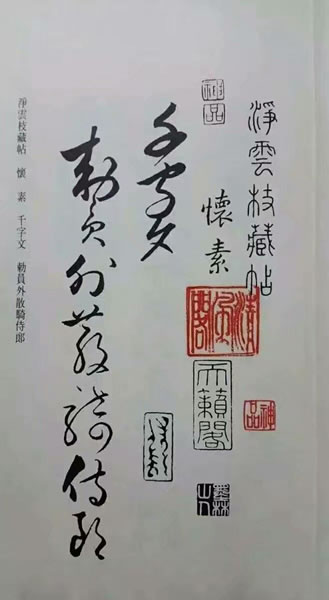 淨雲枝藏帖
神品
懷素
神品
天籟閣
墨林山人
千字文
勅員外散騎侍郎
淨雲枝藏帖 懷 素 千字文 勅員外散騎侍郎